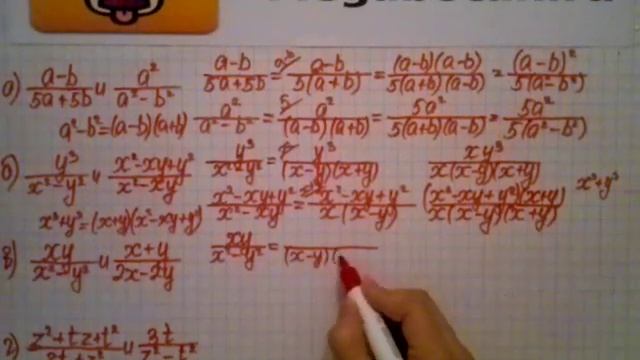 а) a-b / 5a+5b и a² / a²-b² a-b / 5a+5b = a-b / 5(a+b) = (a-b)(a-b) / 5(a+b)(a-b) = (a-b)² / 5(a²-b²)
a²-b²=(a-b)(a+b) a² / a²-b² = a² / (a-b)(a+b) = 5a² / 5(a+b)(a-b) = 5a² / 5(a²-b²)
б) y³ / x²-y² и x²-xy+y² / x²-xy y³ / x²-y² = y³ / (x-y)(x+y) xy³ / x(x-y)(x+y)
x³+y³=(x+y)(x²-xy+y²) x²-xy+y² / x²-xy = x²-xy+y² / x(x-y) (x²-xy+y²)(x+y) / x(x-y)(x+y) x³+y³
в) xy / x²-y² и x+y / 2x-2y xy / x²-y² = / (x-y)(
г) z²+tz+t² и 3t / z²-t²